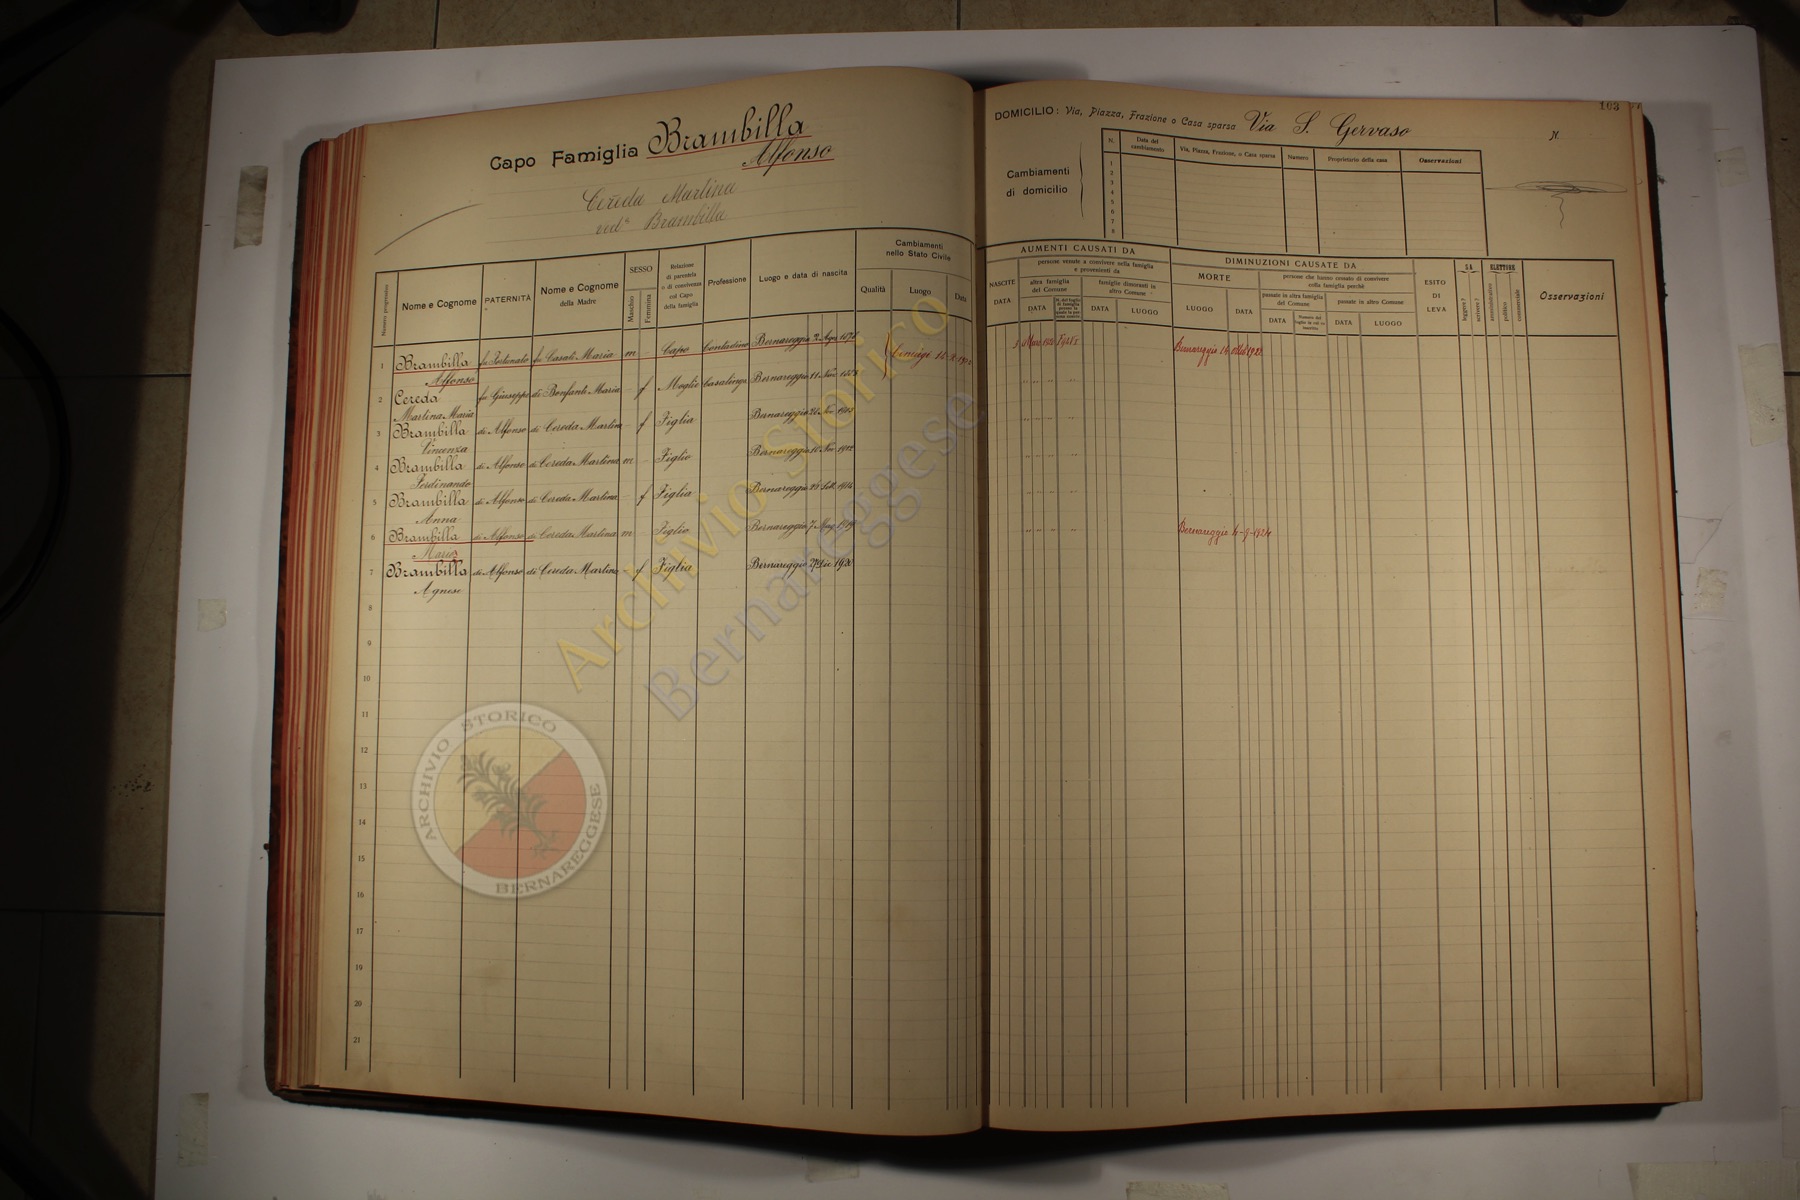 Capo Famiglia Brambilla
Alfonso
Cereda Martina
ved.ª Brambilla
Numero progressivo
Nome e Cognome
PATERNITÀ
Nome e Cognome
della Madre
SESSO
Maschio
Femmina
Relazione
di parentela
o di convivenza
col Capo
della famiglia
Professione
Luogo e data di nascita
Cambiamenti
nello Stato Civile
Qualità
Luogo
Data
1 Brambilla fu Fortunato fu Casati Maria m Capo Contadino Bernareggio 2 Ago
Alfonso
2 Cereda fu Giuseppe di Bonfanti Maria - f Moglie Casalinga Bernareggio 11 Nov
Martina Maria
3 Brambilla di Alfonso di Cereda Martina - f Figlia Bernareggio
Vincenza
4 Brambilla di Alfonso di Cereda Martina m - Figlio Bernareggio 10 Nov 1912
Ferdinando
5 Brambilla di Alfonso di Cereda Martina - f Figlia Bernareggio 28 Sett. 1914
Anna
6 Brambilla di Alfonso di Cereda Martina m - Figlio Bernareggio 7 Mag 1919
Mario
7 Brambilla di Alfonso di Cereda Martina - f Figlia Bernareggio 27 Dic 1920
Agnese
8
9
10
11
12
13
14
15
16
17
18
19
20
21
103
DOMICILIO: Via, Piazza, Frazione o Casa sparsa Via S. Gervaso N.
Cambiamenti
di domicilio
N.
Data del
cambiamento
Via, Piazza, Frazione, o Casa sparsa
Numero
Proprietario della casa
Osservazioni
1
2
3
4
5
6
7
8
AUMENTI CAUSATI DA
NASCITE
DATA
persone venute a convivere nella famiglia
e provenienti da
altra famiglia
del Comune
DATA
famiglie dimoranti in
altro Comune
DATA
LUOGO
DIMINUZIONI CAUSATE DA
MORTE
LUOGO
DATA
persone che hanno cessato di convivere
colla famiglia perchè
passate in altra famiglia
del Comune
DATA
passate in altro Comune
DATA
LUOGO
ESITO
DI
LEVA
SA
leggere?
scrivere?
ELETTORE
amministrativo
politico
commerciale
Osservazioni
Bernareggio 14 1928
Bernareggio 4-9-1924
Archivio Storico
Bernareggese
ARCHIVIO STORICO
BERNAREGGESE